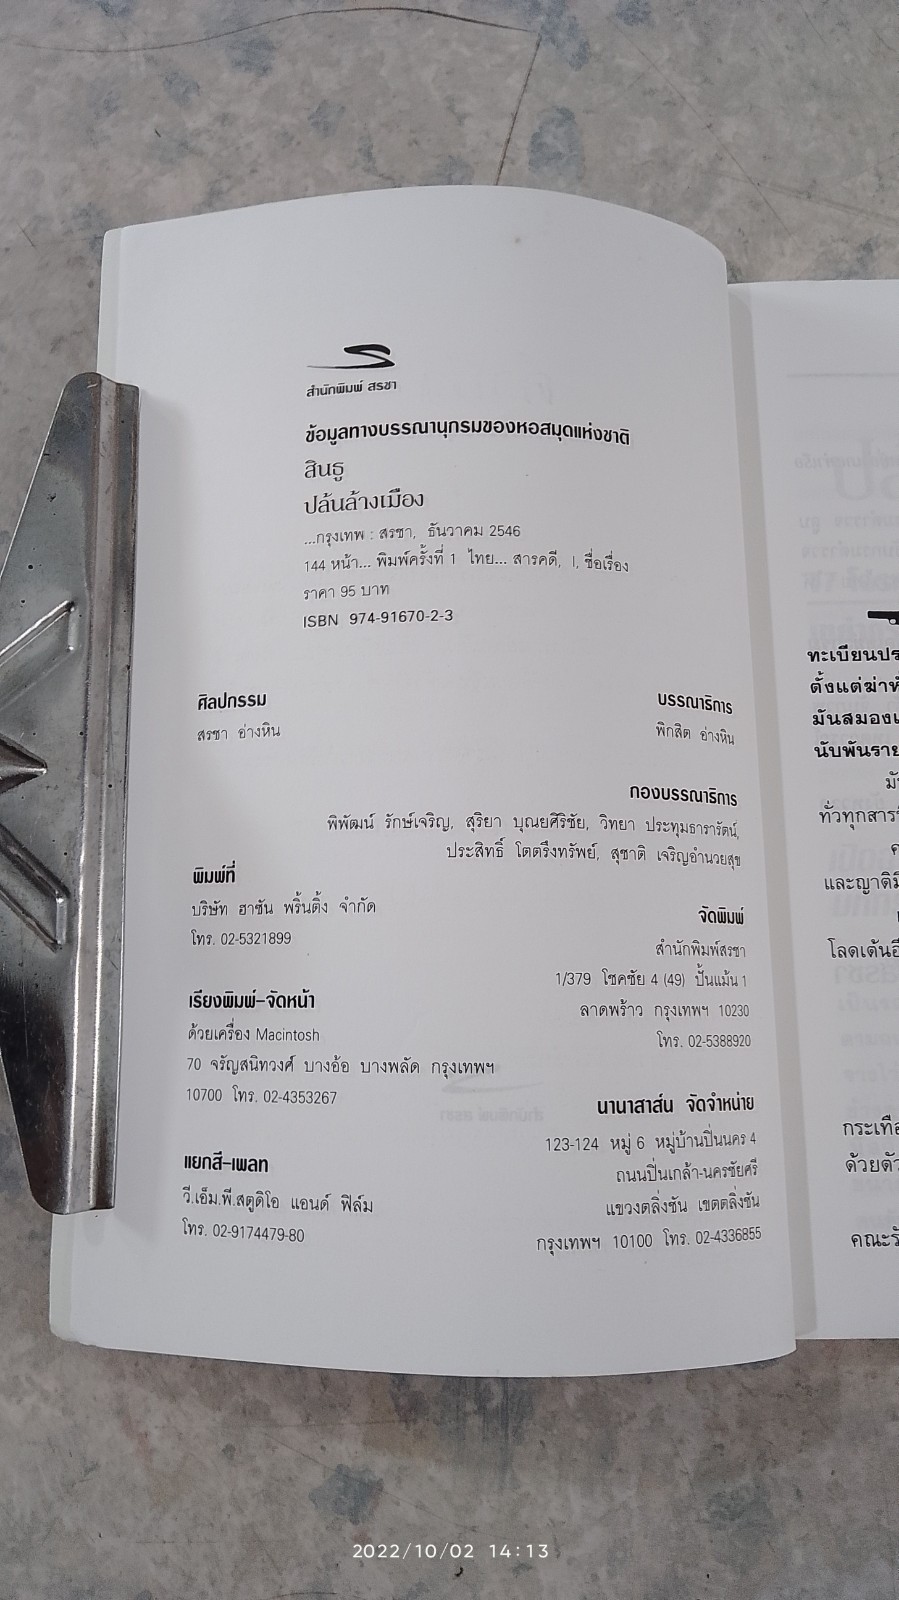 สำนักพิมพ์ สรชา
ข้อมูลทางบรรณานุกรมของหอสมุดแห่งชาติ
สินธู
ปล้นล้างเมือง
...กรุงเทพ : สรชา, ธันวาคม 2546
144 หน้า... พิมพ์ครั้งที่ 1 ไทย... สารคดี, I, ชื่อเรื่อง
ราคา 95 บาท
ISBN 974-91670-2-3
ศิลปกรรม
สรชา อ่างหิน
บรรณาธิการ
พิกสิต อ่างหิน
กองบรรณาธิการ
พิพัฒน์ รักษ์เจริญ, สุริยา บุณยศิริชัย, วิทยา ประทุมธารารัตน์,
ประสิทธิ์ โตตรึงทรัพย์, สุชาติ เจริญอำนวยสุข
พิมพ์ที่
บริษัท ฮาซัน พริ้นติ้ง จำกัด
โทร. 02-5321899
จัดพิมพ์
สำนักพิมพ์สรชา
1/379 โชคชัย 4 (49) ปั้นแม้น 1
ลาดพร้าว กรุงเทพฯ 10230
โทร. 02-5388920
เรียงพิมพ์-จัดหน้า
ด้วยเครื่อง Macintosh
70 จรัญสนิทวงศ์ บางอ้อ บางพลัด กรุงเทพฯ
10700 โทร. 02-4353267
นานาสาส์น จัดจำหน่าย
123-124 หมู่ 6 หมู่บ้านปิ่นนคร 4
ถนนปิ่นเกล้า-นครชัยศรี
แขวงตลิ่งชัน เขตตลิ่งชัน
กรุงเทพฯ 10100 โทร. 02-4336855
แยกสี-เพลท
วี.เอ็ม.พี.สตูดิโอ แอนด์ ฟิล์ม
โทร. 02-9174479-80
ทะเบียนปร
ตั้งแต่ฆ่าห
มันสมองเ
นับพันราย
มั
ทั่วทุกสาร
และญาติมิ
โลดเต้น
กระเทือ
ด้วยตัว
คณะรั
2022/10/02 14:13